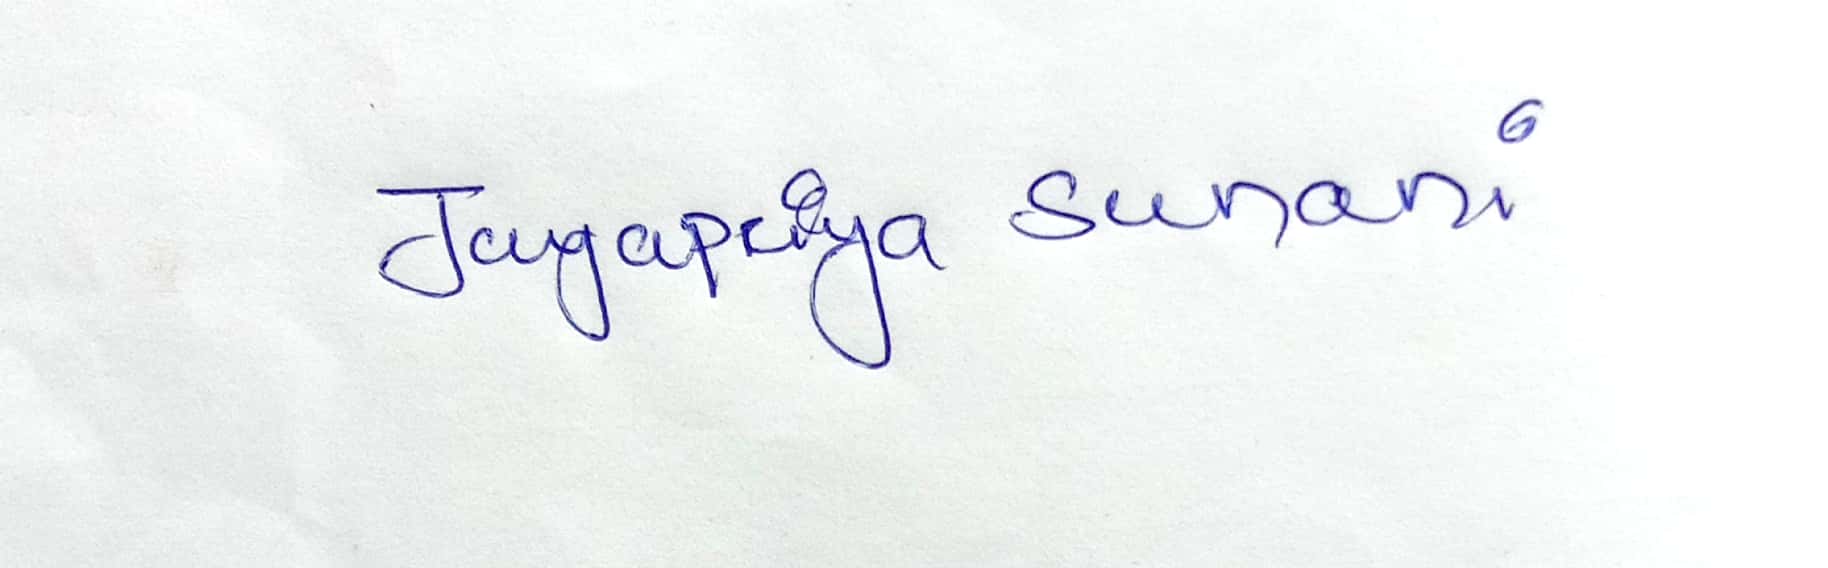 Jayapriya Sunani